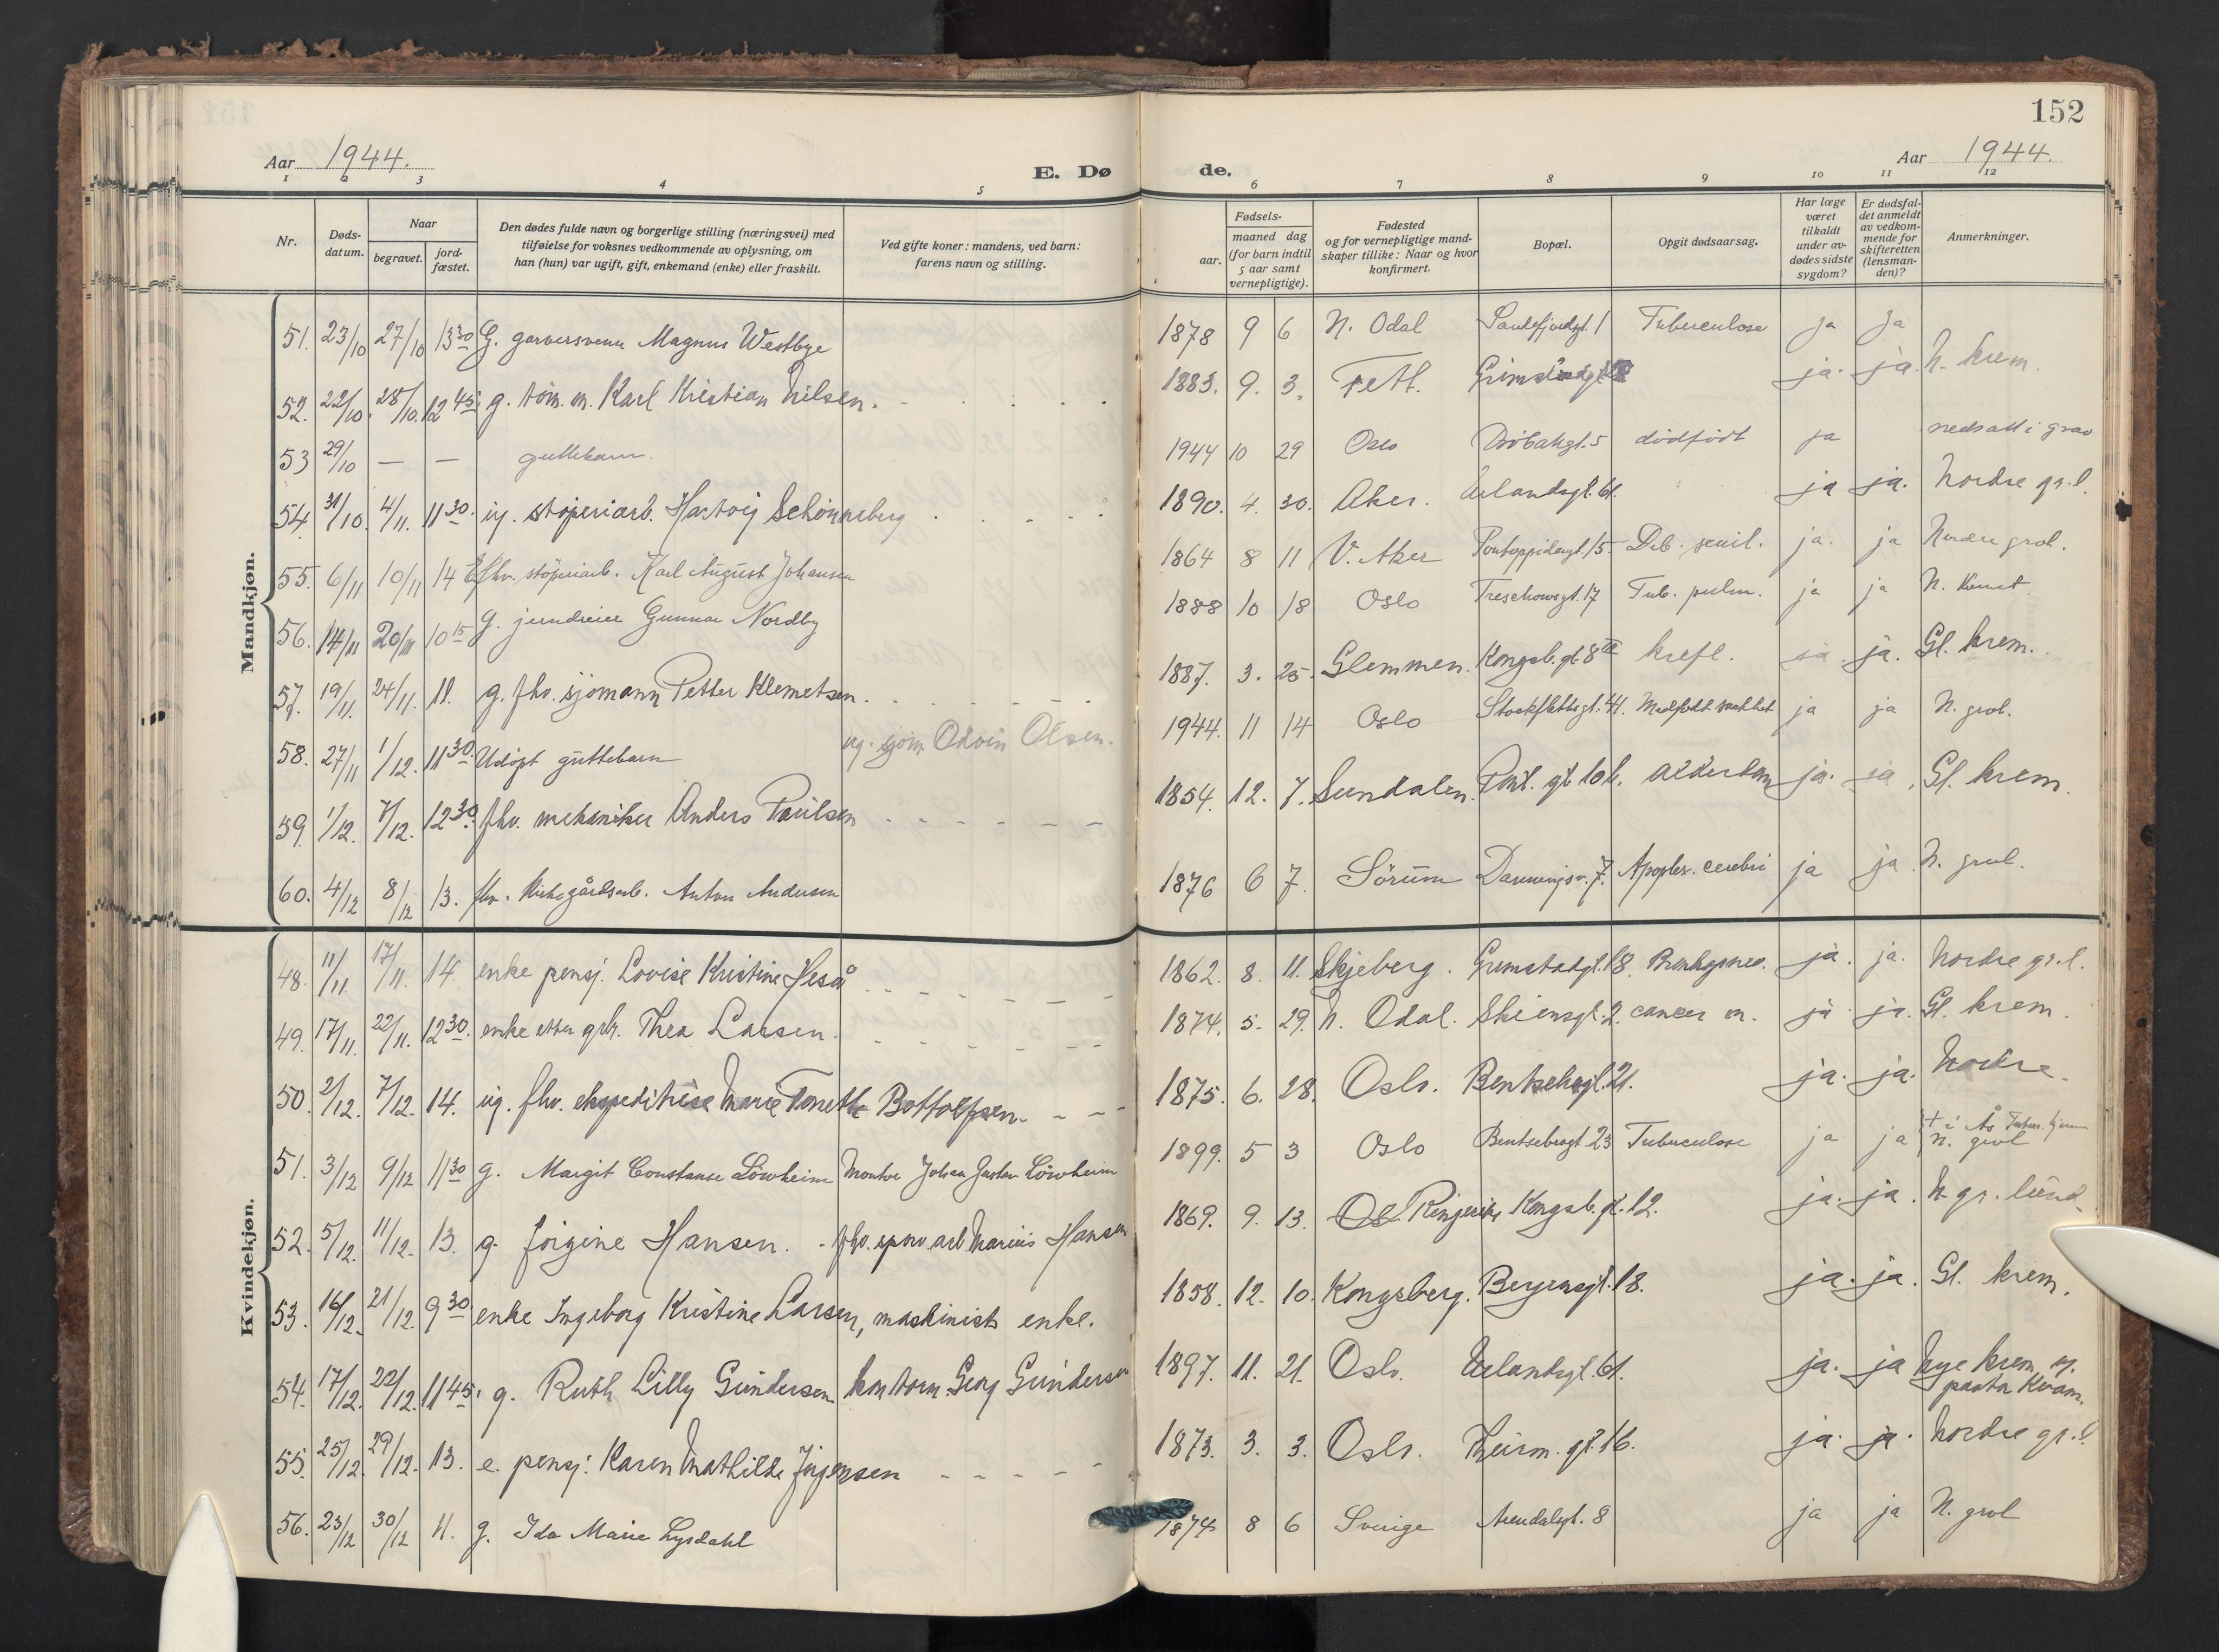 152
Aar 1944.
E. Dø
de.
Aar 1944.
1 2 3 4 5 6 7 8 9 10 11 12
Nr.
Døds-
datum.
Naar
begravet.
jord-
fæstet.
Den dødes fulde navn og borgerlige stilling (næringsvei) med
tilføielse for voksnes vedkommende av oplysning, om
han (hun) var ugift, gift, enkemand (enke) eller fraskilt.
Ved gifte koner: mandens, ved barn:
farens navn og stilling.
Fødsels-
aar.
maaned dag
(for barn indtil
5 aar samt
vernepligtige).
Fødested
og for vernepligtige mand-
skaper tillike: Naar og hvor
konfirmert.
Bopæl.
Opgit dødsaarsag.
Har læge
været
tilkaldt
under av-
dødes sidste
sygdom?
Er dødsfal-
det anmeldt
av vedkom-
mende for
skifteretten
(lensman-
den)?
Anmerkninger.
Mandkjøn.
51. 23/10 27/10 13 30 G. garversvenn Magnus Westbye 1878 9 6 N. Odal Sandefjordgt. 1 Tuberculose ja ja
52. 22/10. 28/10. 12 45. g. tøm. m. Karl Kristian Nilsen. 1883. 9. 3. Fett. ja. ja. N. krem.
53 29/10 — — guttebarn. 1944 10 29 Oslo Drøbakgt. 5 dødfødt ja nedsatt i grav
54. 31/10. 4/11. 11 30. ug. støperiarb. Hartvig Schönneberg 1890. 4. 30. Aker. Uelandsgt. 61. ja ja. Nordre gr.l.
55. 6/11 10/11 14 fhv. støperiarb. Karl August Johansen 1864 8 11 V. Aker Pontoppidansgt. 15. Deb. senil. ja. ja Nordre grol.
56. 14/11 20/11 10 15 g. jerndreier Gunnar Nordby 1888 10 18 Oslo Treschowsgt. 17 Tub. pulm. ja ja N.
57. 19/11. 24/11. 11. g. fhv. sjømann Petter Klemetsen. 1887. 3. 25. Glemmen. Kongsb. gt. 8 III kreft. ja. ja. Gl. krem.
58. 27/11 1/12. 11 30. Udøpt guttebarn ug. sjøm. Odvin Olsen. 1944. 11 14 Oslo Stockflethsgt. 41. Medfødt svakhet ja ja N. grol.
59. 1/12. 7/12. 12 30. fhv. mekaniker Anders Paulsen 1854. 12. 7. Sundalen. alderdom ja. ja. Gl. krem.
60. 4/12 8/12 13. fhv. Kirkegårdsarb. Anton Andersen 1876 6 7. Sørum Danningsv. 7. Apoplex. cerebri ja ja N. grol.
Kvindekjøn.
48. 11/11. 17/11. 14. enke pensj. Lovise Kristine Heså 1862. 8. 11. Skjeberg. Grimstadgt. 18. ja. ja. Nordre gr.l.
49. 17/11. 22/11. 12 30. enke etter grb. Thea Larsen. 1874. 5. 29. N. Odal. Skiensgt. 2. cancer m. ja ja. Gl. krem.
50. 2/12. 7/12. 14. ug. fhv. ekspeditrise Marie Tonette Bottolfsen. 1875. 6. 28. Oslo. Bentsehgt. 21. ja. ja. Nordre.
51. 3/12 9/12 11 30 g. Margit Constanse Löwheim Montør Johan Gustav Löwheim 1899. 5 3 Oslo Bentsebrogt. 23 Tuberculose ja ja + i Ås Tuber. hjem N. grol
52. 5/12. 11/12. 13. g. Jørgine Hansen. fhv. sporv. arb. Marius Hansen 1869. 9. 13. Ringerike Kongsb. gt. 12. ja. ja. N. gr. lund.
53. 16/12. 21/12. 9 30 enke Ingeborg Kristine Larsen, maskinist enke. 1858. 12. 10. Kongsberg. Bergensgt. 18. ja. ja. Gl. krem.
54. 17/12. 22/12. 11 45. g. Ruth Lilly Gundersen kontorm. Georg Gundersen 1897. 11. 21. Oslo. Uelandsgt. 61. ja. ja Nye krem. v. pastor Kvam.
55. 25/12. 29/12. 13. e. pensj. Karen Mathilde Jørgensen 1873. 3. 3. Oslo. Theirm. gt. 16. ja. ja. Nordre gr.l.
56. 23/12 30/12 11. g. Ida Marie Lysdahl 1874 8 6 Sverige Arendalsgt. 8 ja ja N. grol